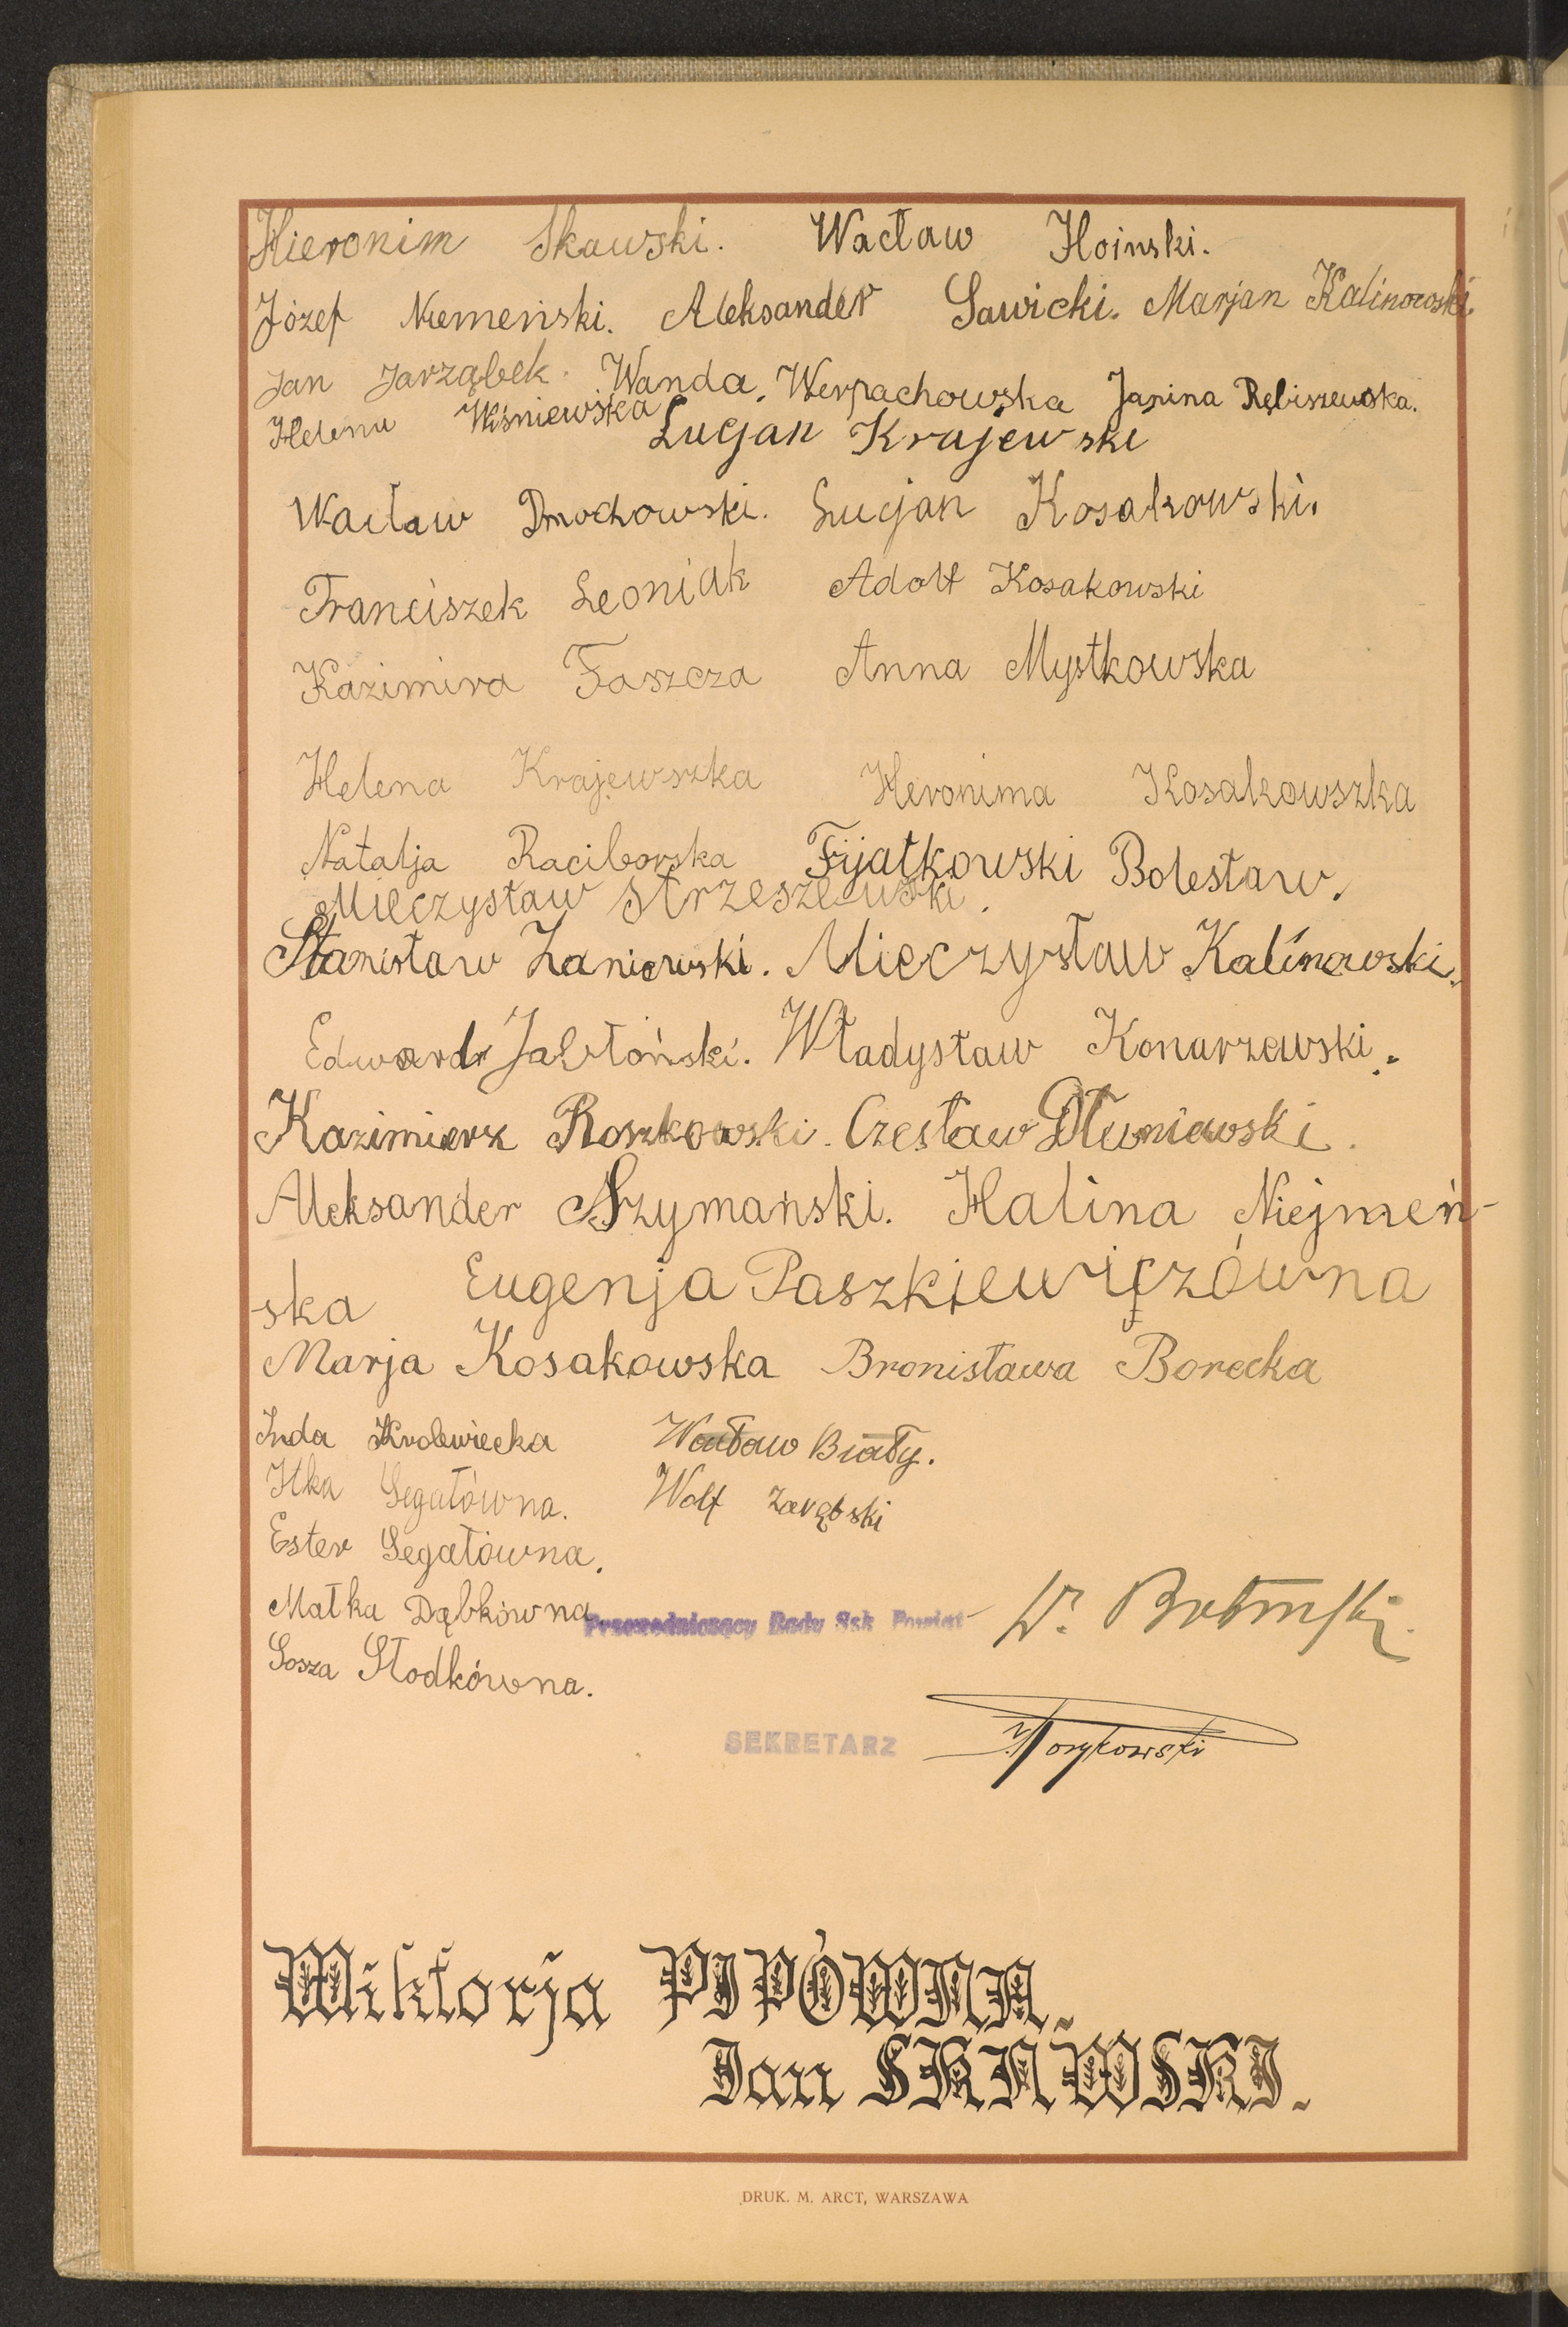 Hieronim Skawski. Wacław Hoinski.
Józef Niemeński. Aleksander Sawicki. Marjan Kalinowski.
Jan Jarząbek. Wanda Werpachowska Janina Rębiszewska.
Helena Wiśniewska Lucjan Krajewski
Wacław Dmochowski. Lucjan Kosakowski.
Franciszek Leoniak Adolf Kosakowski
Kazimira Faszcza Anna Mystkowska
Helena Krajewszka Heronima Kosakowszka
Natalja Raciborska Fijałkowski Bolesław.
Mieczysław Strzeszewski.
Stanisław Zaniewski. Mieczysław Kalinowski.
Edward Jabłoński. Władysław Konarzewski.
Kazimierz Roszkowski. Czesław Dłuniewski.
Aleksander Szymański. Halina Niejmeń-
ska Eugenja Paszkiewiczówna
Marja Kosakowska Bronisława Borecka
Inda Krolewiecka Wacław Biały.
Itka Segałówna. Wolf Zarębski
Ester Segałówna.
Małka Dąbkówna Przewodniczący Rady Szk Powiat
Sosza Słodkówna.
SEKRETARZ
Wiktorja PIPÓWNA.
Jan SKAWSKI.
DRUK. M. ARCT, WARSZAWA